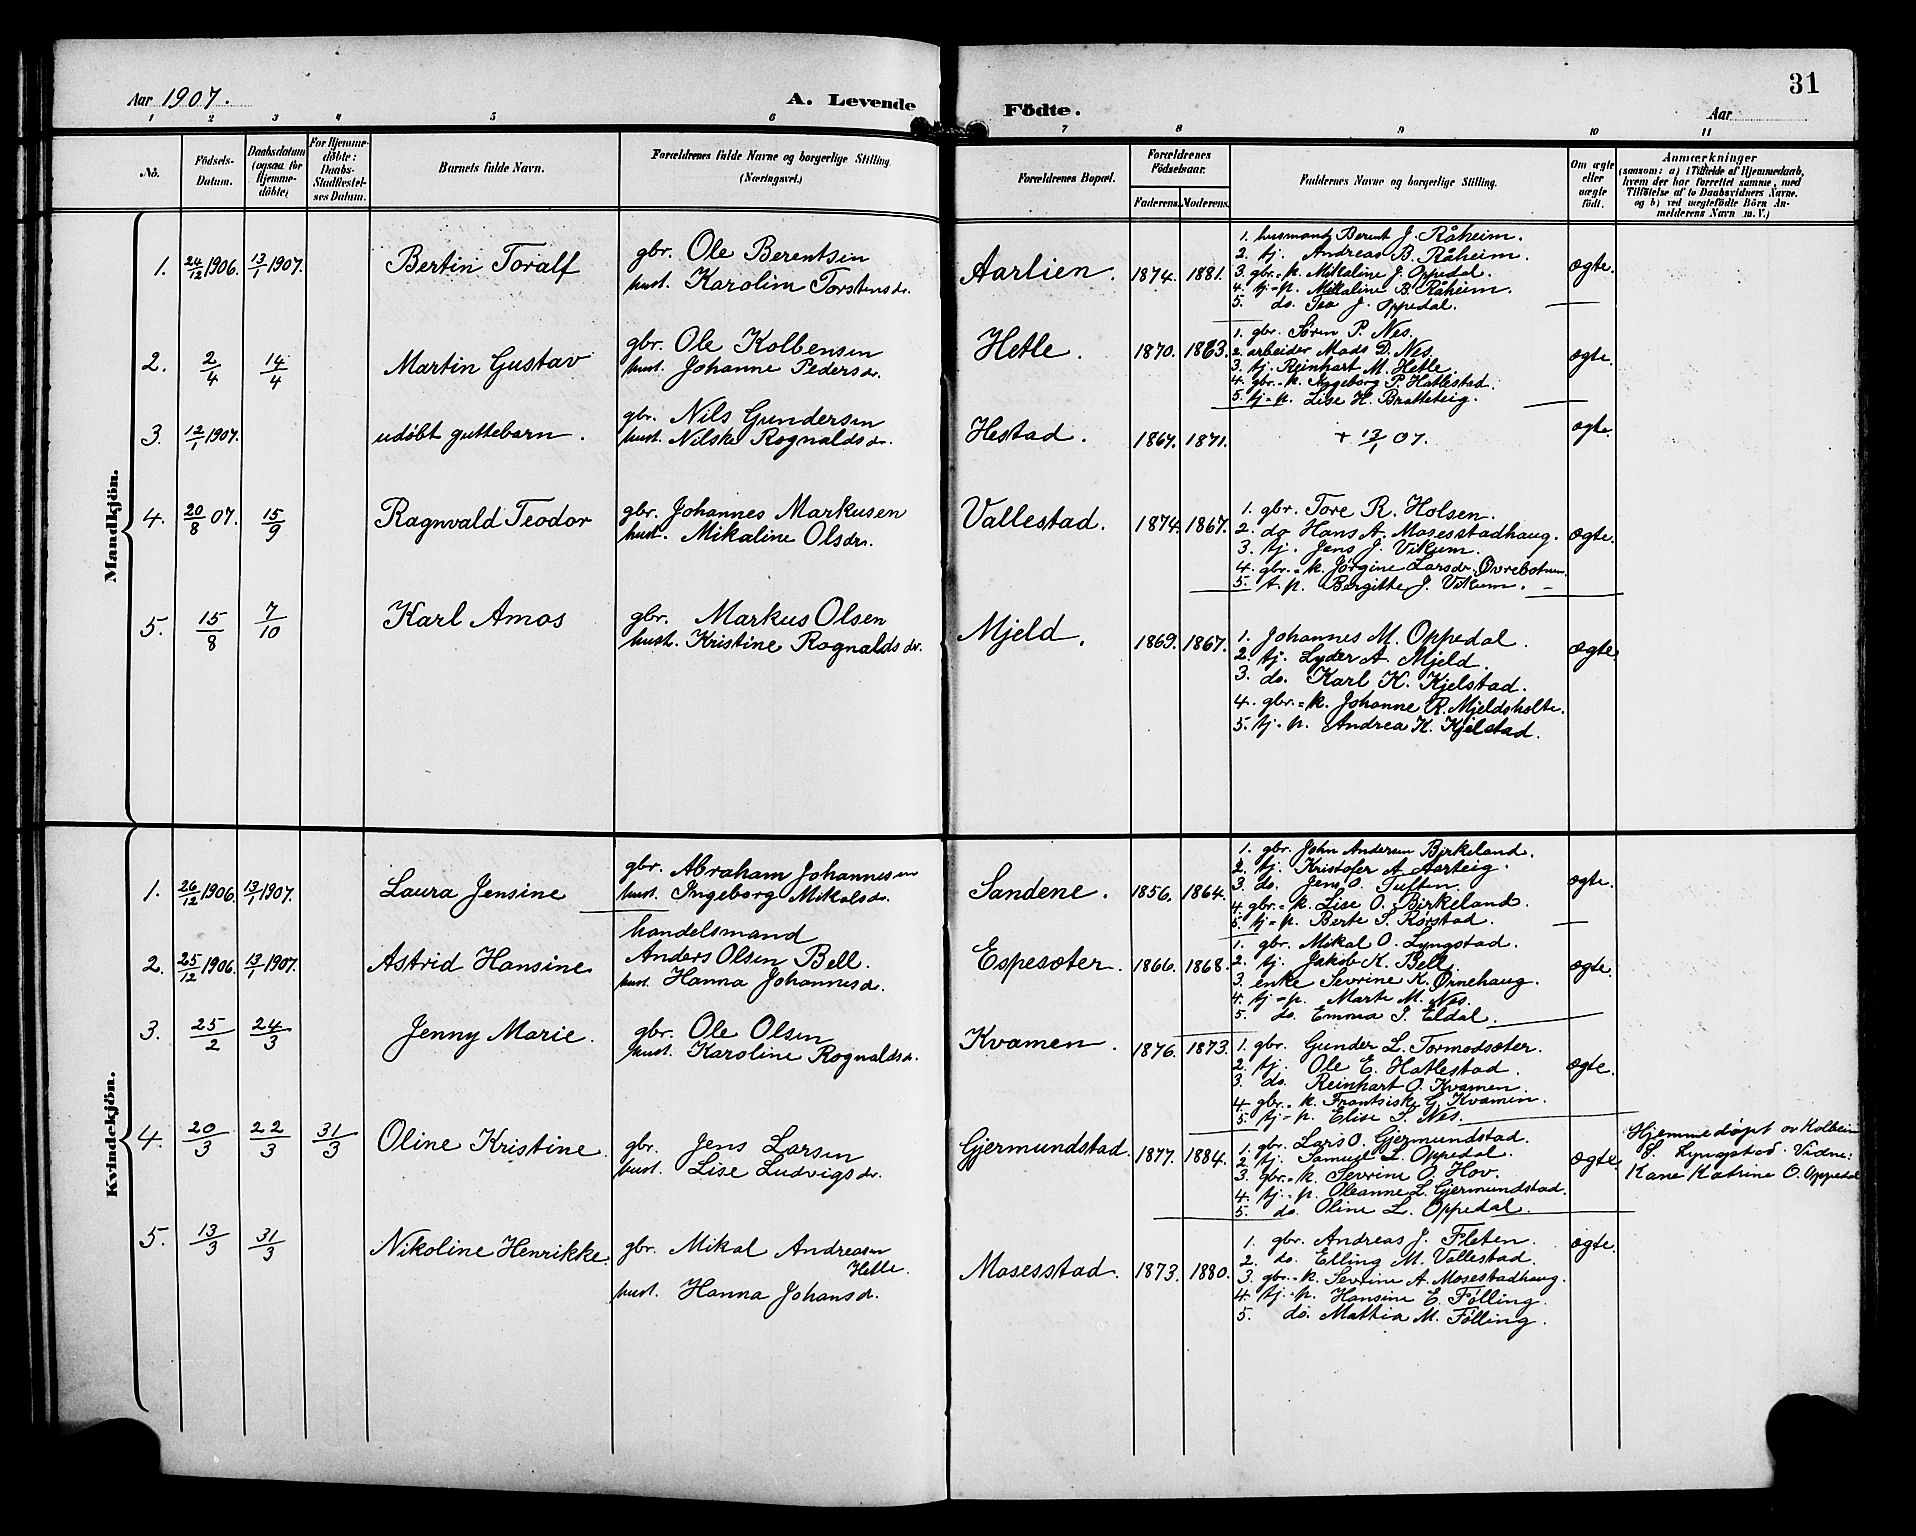 31
Aar 1907. A. Levende Födte. Aar
1 2 3 4 5 6 7 8 9 10 11
No. Födsels-Datum. Daabsdatum (ogsaa for Hjemme-döbte) For Hjemme-döbte: Daabs-Stadfæstel-ses Datum. Barnets fulde Navn. Forældrenes fulde Navne og borgerlige Stilling. (Næringsvei.) Forældrenes Bopæl. Forældrenes Födselsaar. Faderens. Moderens. Faddernes Navne og borgerlige Stilling. Om ægte eller uægte födt. Anmærkninger (saasom: a) i Tilfælde af Hjemmedaab, hvem der har forrettet samme, med Tilföielse af to Daabsvidners Navne. og b) ved uægtefödte Börn An-melderens Navn m. V.)
Mandkjön.
1. 24/12 1906. 13/1 1907. Bertin Toralf
gbr. Ole Berentsen
hust. Karoline Torstensdr.
Aarlien. 1874. 1881.
1. husmand Berent J. Råheim.
2. tj. Andreas B. Råheim.
3. gbr.=k. Mikaline J. Oppedal.
4. tj.=p. Mikaline B. Råheim.
5. do. Tea J. Oppedal.
ægte.
2. 2/4 14/4 Martin Gustav
gbr. Ole Kolbensen
hust. Johanne Pedersdr.
Hetle. 1870. 1863.
1. gbr. Søren P. Nes.
2. arbeider Mads D. Nes.
3. tj. Reinhart M. Hetle.
4. gbr.=k. Ingeborg P. Hatlestad.
5. tj.=p. Lise H. Bratteteig.
ægte.
3. 12/1 1907. udöbt guttebarn.
gbr. Nils Gundersen
hust. Nilske Rognaldsdr.
Hestad. 1867. 1871.
+ 13/1 07.
ægte.
4. 20/8 07. 15/9 Ragnvald Teodor
gbr. Johannes Markusen
hust. Mikaline Olsdr.
Vallestad. 1874. 1867.
1. gbr. Tore R. Holsen.
2. do Hans A. Mosesstadhaug.
3. tj. Jens J. Vikum.
4. gbr.=k. Jørgine Larsdr. Øvrebotnen.
5. t. p. Bergitte J. Vikum.
ægte.
5. 15/8 7/10 Karl Amos
gbr. Markus Olsen
hust. Kristine Rognaldsdr.
Mjeld. 1869. 1867.
1. Johannes M. Oppedal.
2. tj. Lyder A. Mjeld.
3. do. Karl K. Kjelstad.
4. gbr.=k. Johanne R. Mjeldsholte.
5. tj.=p. Andrea K. Kjelstad.
ægte.
Kvindekjön.
1. 26/12 1906. 13/1 1907. Laura Jensine
gbr. Abraham Johannesen
hust. Ingeborg Mikalsdr.
Sandene. 1856. 1864.
1. gbr. John Andersen Birkeland.
2. tj. Kristofer A. Aarteig.
3. do. Jens O. Tuften.
4. gbr.=k. Lise O. Birkeland.
5. tj.=p. Berte S. Rørstad.
ægte.
2. 25/12 1906. 13/1 1907. Astrid Hansine
handelsmand
Anders Olsen Bell.
hust. Hanna Johannesdr.
Espesæter. 1866. 1868.
1. gbr. Mikal O. Lyngstad.
2. tj. Jakob K. Bell.
3. enke Sevrine K. Ørnehaug.
4. tj=p. Marte M. Nes.
5. do. Emma J. Eldal.
ægte.
3. 25/2 24/3 Jenny Marie.
gbr. Ole Olsen
hust. Karoline Rognaldsdr.
Kvamen. 1876. 1873.
1. gbr. Gunder L. Tormodsæter.
2. tj. Ole E. Hatlestad.
3. do. Reinhart O. Kvamen.
4. gbr.=k. Frantsiske G. Kvamen.
5. tj=p. Elise S. Nes.
ægte.
4. 20/3 22/3 31/3 Oline Kristine
gbr. Jens Larsen
hust. Lise Ludvigsdr.
Gjermundstad. 1877. 1884.
1. gbr. Lars O. Gjermundstad.
2. tj. Samuel L. Oppedal.
3. gbr.=k. Sevrine O. Hov.
4. tj.=p. Oleanne L. Gjermundstad.
5. do. Oline L. Oppedal.
ægte.
Hjemmedøpt av Kolbein
S. Lyngstad. Vidne:
Kane Katrine O. Oppedal
5. 13/3 31/3 Nikoline Henrikke.
gbr. Mikal Andreasen
Hetle.
hust. Hanna Johansdr.
Mosesstad. 1873. 1880.
1. gbr. Andreas J. Fleten.
2. do. Elling M. Vallestad.
3. gbr.=k. Sevrine A. Mosestadhaug.
4. tj.=p. Hansine E. Følling.
5. do. Mathia M. Følling.
ægte.